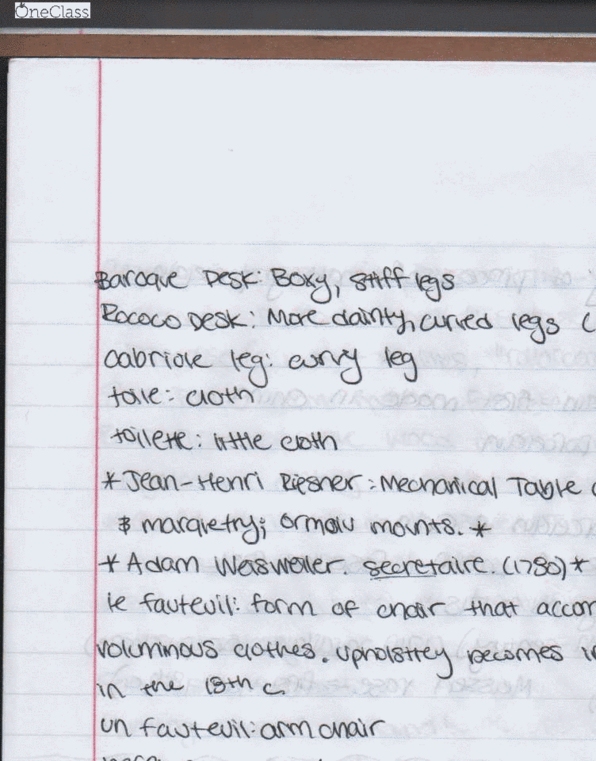 OneClass
Baroque Desk: Boxy, stiff legs
Rococo Desk: More dainty, curved legs (
cabriole leg: curvy leg
toile: cloth
toilette: little cloth
* Jean-Henri Riesner: Mechanical Table
& marqietry; ormolu mounts. *
* Adam Weisweiler. secretaire. (1780) *
le fauteuil: form of chair that accom
voluminous clothes. upholstrey becomes i
in the 18th c.
un fauteuil: arm chair